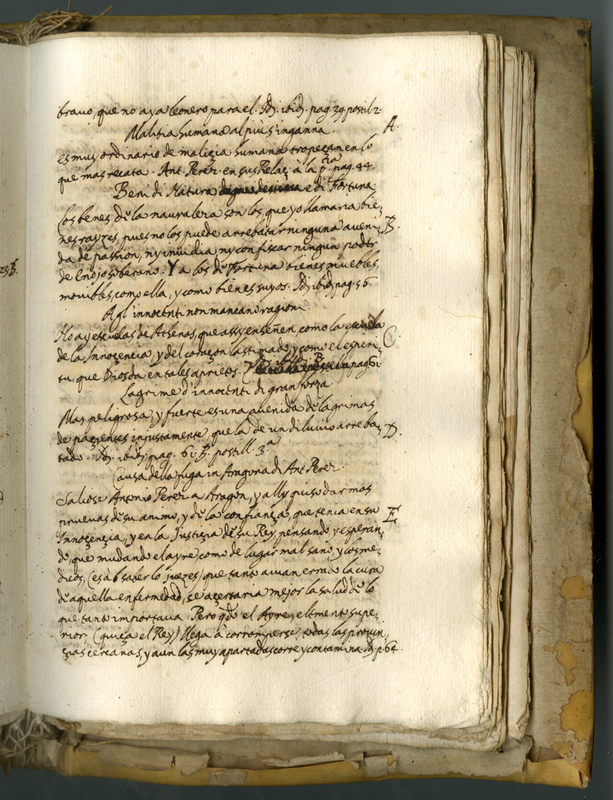 brauo, que no aya leonero para el. Id. ibid. pag. 29. postil. 2.
Malitia humana al piu s'inganna. A.
es muy ordinario de malizia humana tropeçar en lo
que mas recata. Ant. Perez. en sus Relaz. a la pag. 44.
Beni di Natura e di Fortuna
Los benes de la naturaleza son los, que yo llamaria bie-
nes rayzes, pues no los puede arrebatar ninguna aueni- B.
da de passion, ny inuidia ny confiscar ningun poder
de Enojo soberano. Y a los de Fortuna bienes muebles,
mouibles, como ella, y como bienes suyos. Id. ibid. pag. 56.
A gl' innocenti non mancan ragioni.
No ay escuelas de Athenas, que assy enseñen, como la escuela
de la Innoçençia, y del coraçon lastimado, y como el espiri- C.
tu, que Dios da en tales aprietos. pag. 61
Lagrime d' innocenti di gran forza
Mas peligrosa, y fuerte es una auenida de lagrimas
de paçientes injustamente, que la de un diluuio arreba- D.
tado. Id. ibid. pag. 61. B. postill. 3.a
Causa della fuga in Aragona di Ant. Perez.
Saliose Antonio Perez a Aragon, y ally quiso dar mas
prueuas de su animo, y de la confiança, que tenia en su E.
Innoçençia, y en la Justiçia de su Rey, pensando, y esperan-
do, que mudando el ayre, como de lugar mal sano, y los me-
dicos, (es a saber los juezes) que tanto auian errado la cura
de aquella enfermedad, se açertaria mejor la salud de lo
que tanto importaua. Pero qdo el Ayre, elemento supe-
rior, (quiça el Rey) llega a corromperse, todas las prouin-
çias cercanas, y aun las muy apartadas corre y contamina. Id. p. 64.